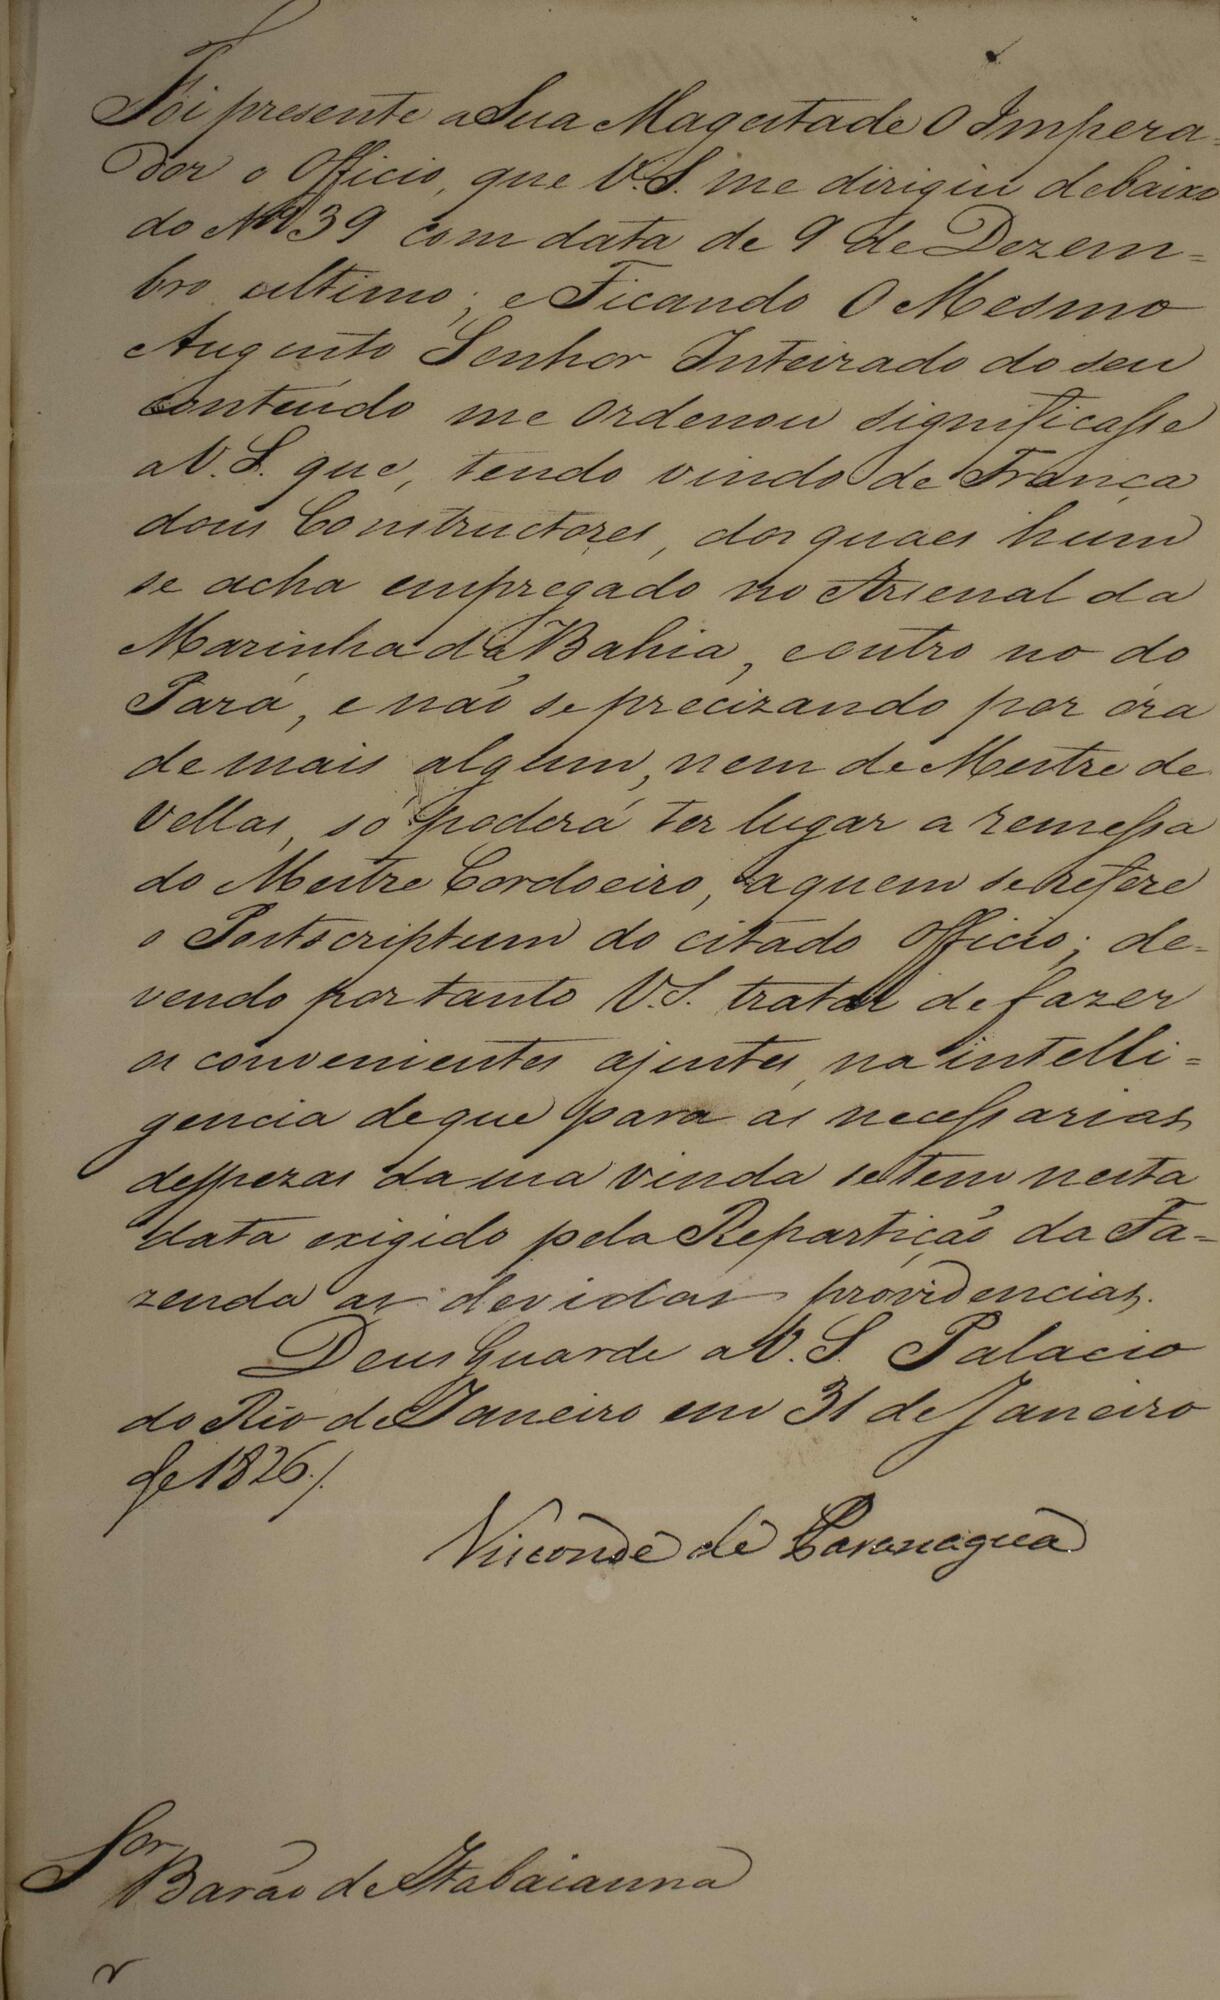 Foi presente a Sua Magestade O Impera-
dor o Officio, que V.S. me dirigiu debaixo
do Nº 39 com data de 9 de Dezem=
bro ultimo; e Ficando O Mesmo
Augusto Senhor Inteirado do seu
contéudo me ordenou significasse
a V.S. que, tendo vindo de França
dous Constructores, dos quaes hum
se acha empregado no Arsenal da
Marinha da Bahia, e outro no do
Pará, e não se precizando por óra
de mais algum, nem de Mestre de
Vellas, só poderá ter lugar a remessa
do Mestre Cordoeiro, a quem se refere
o Postscriptum do citado Officio; de-
vendo portanto V.S. tratar de fazer
os convenientes ajustes, na intelli=
gencia de que para as necessarias
despezas da sua vinda se tem nesta
data exigido pela Repartição da Fa-
zenda as devidas providencias.
Deus Guarde a V.S. Palacio
do Rio de Janeiro em 31 de Janeiro
de 1826./
Visconde de Paranagua
Sor Barão de Itabaianna